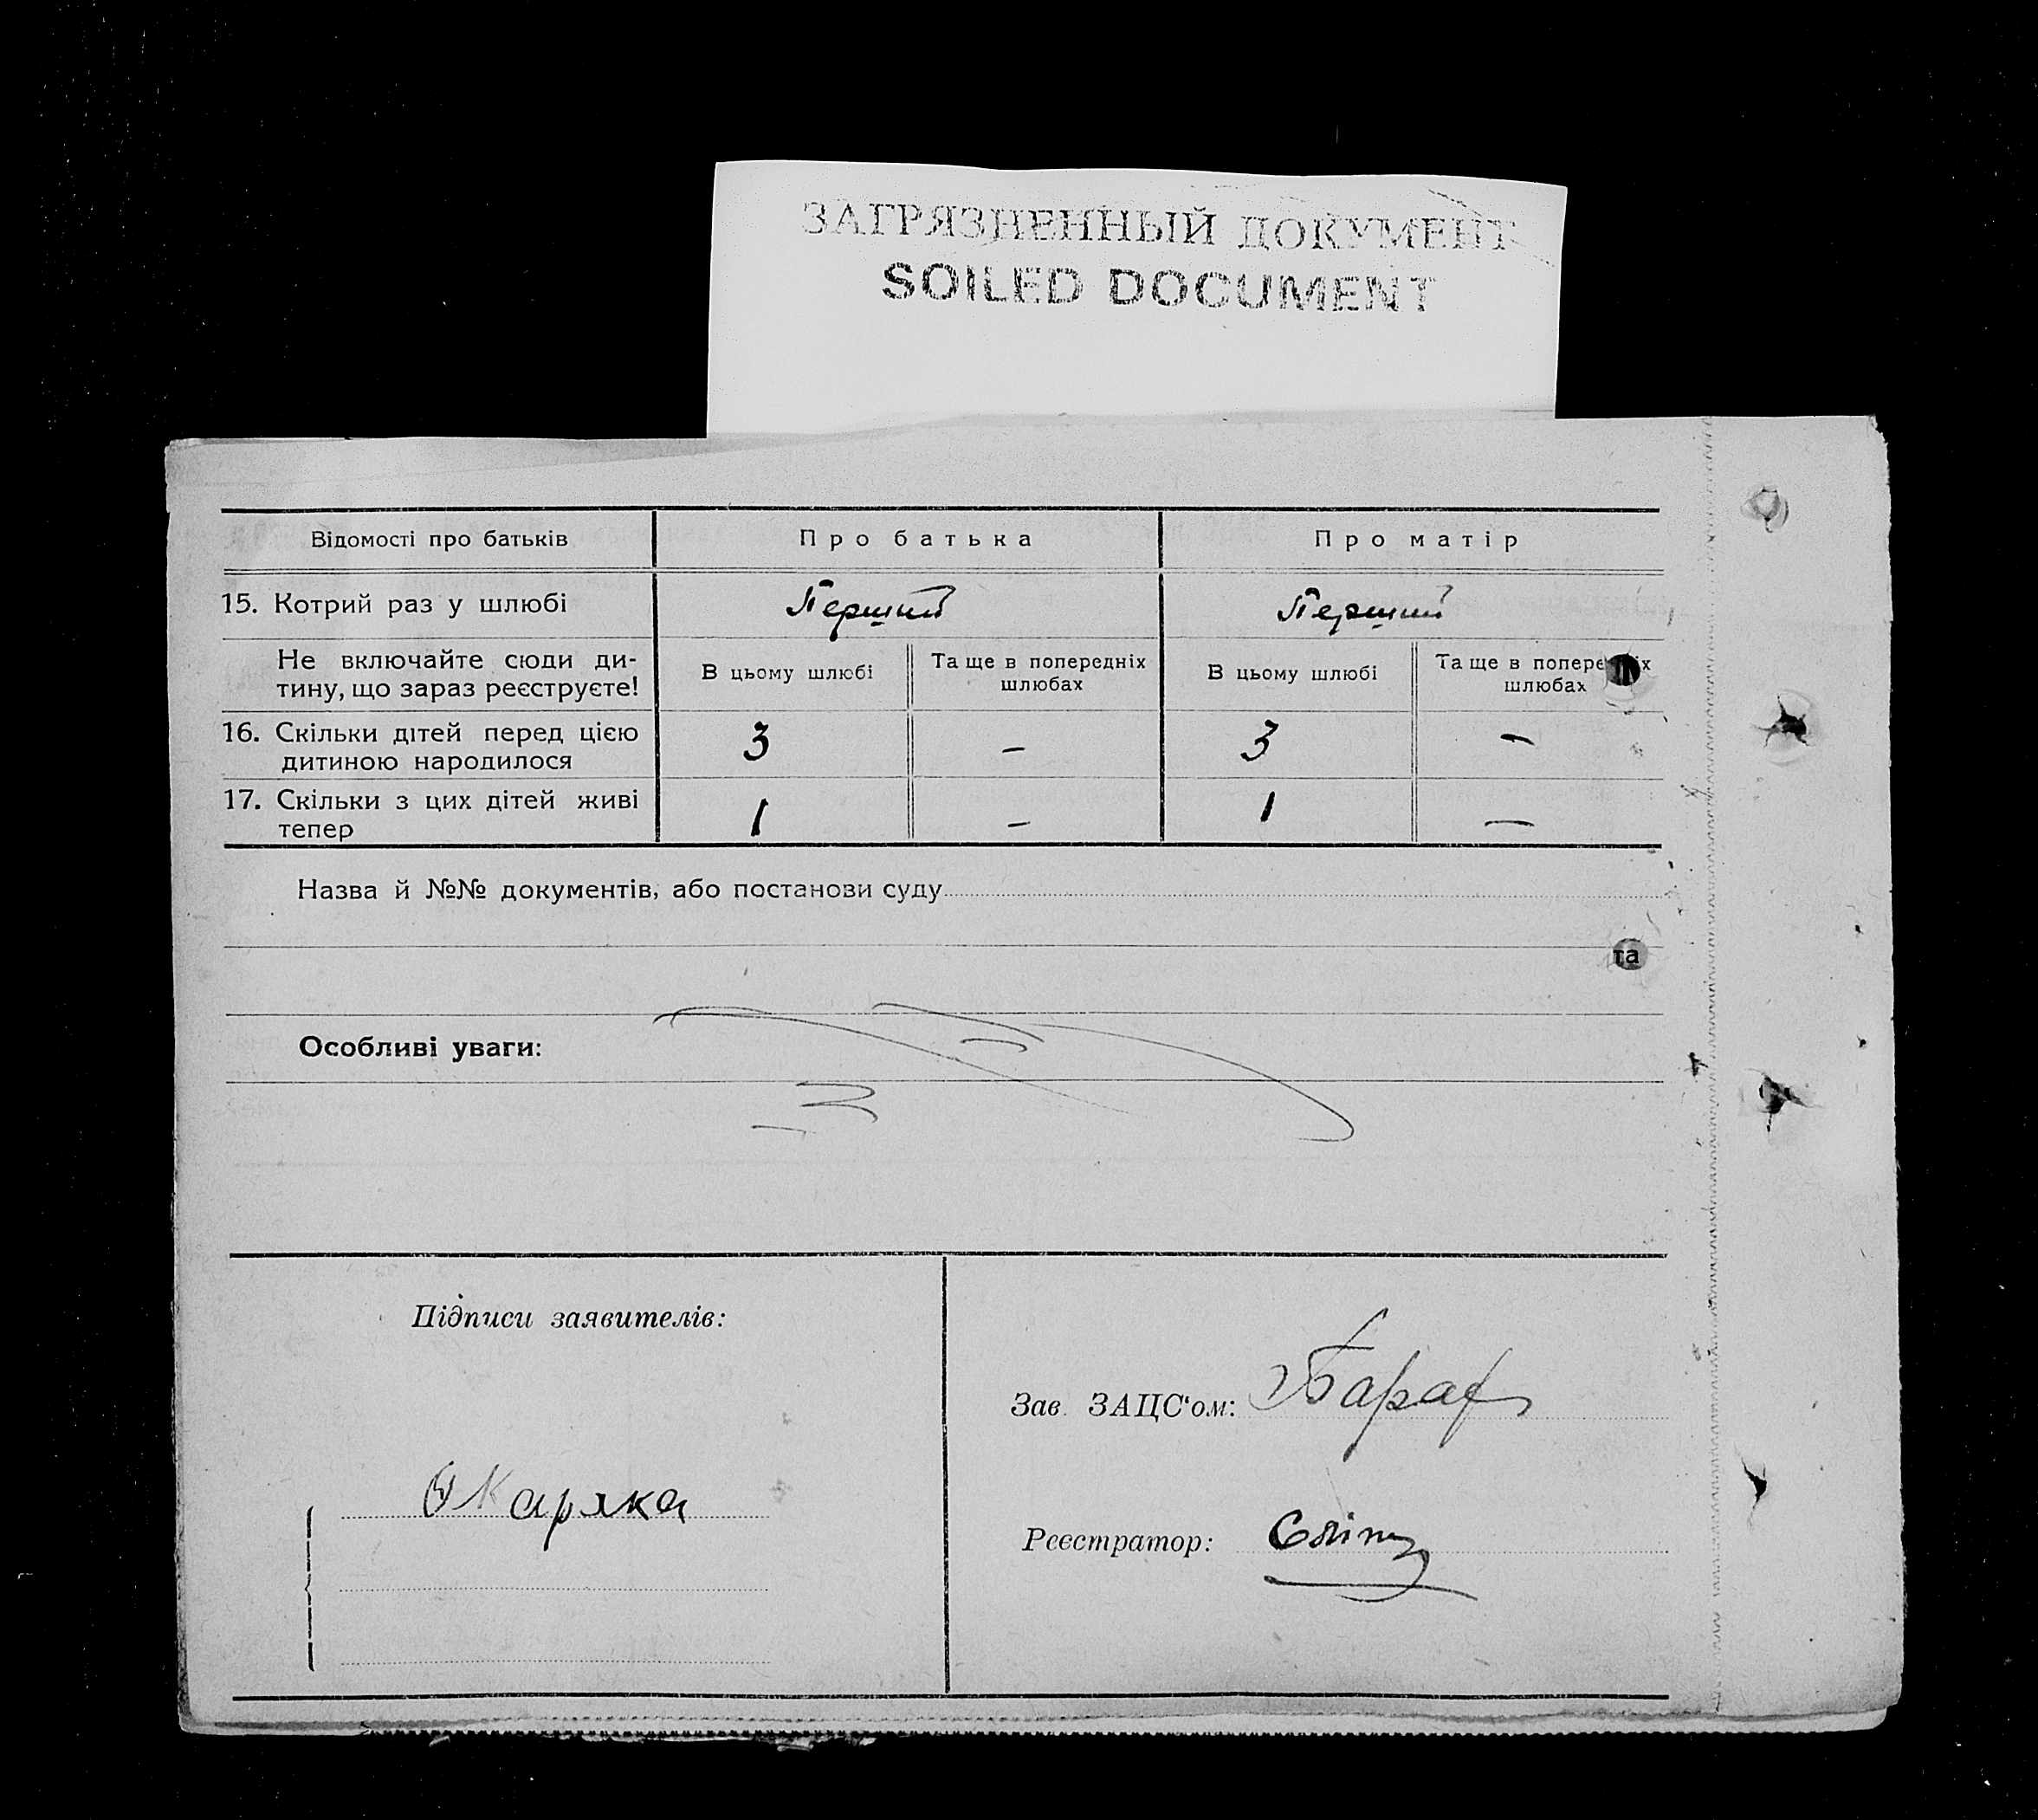 ЗАГРЯЗНЕННЫЙ ДОКУМЕНТ
SOILED DOCUMENT
Відомості про батьків Про батька Про матір
15. Котрий раз у шлюбі Перший Перший
Не включайте сюди ди-
тину, що зараз реєструєте!
В цьому шлюбі Та ще в попередніх
шлюбах
В цьому шлюбі Та ще в попере х
шлюбах
16. Скільки дітей перед цією
дитиною народилося 3 – 3 –
17. Скільки з цих дітей живі
тепер 1 – 1 –
Назва й №№ документів, або постанови суду
та
Особливі уваги:
Підписи заявителів:
Зав. ЗАЦС‘ом:
Каряка
Реєстратор: